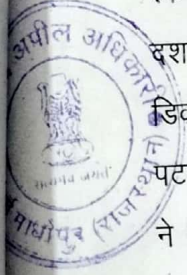 अपील अधिकारी
सत्यमेव जयते
माधोपुर (राजस्थान)
दश
डिव
पट
ने